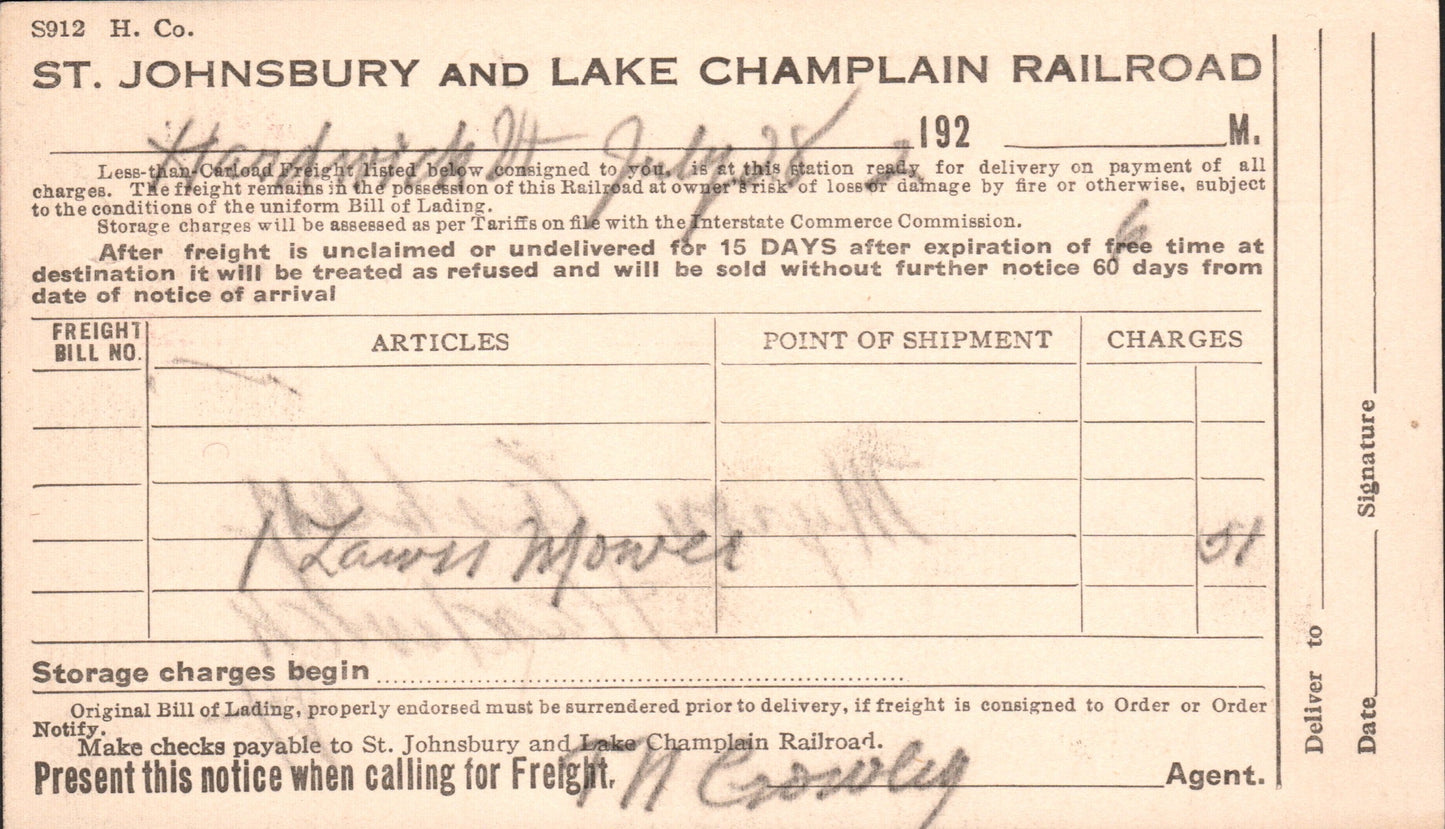 S912 H. Co.
ST. JOHNSBURY AND LAKE CHAMPLAIN RAILROAD
Hardwick Vt July 28 2 192 M.
Less-than-Carload Freight listed below consigned to you, is at this station ready for delivery on payment of all
charges. The freight remains in the possession of this Railroad at owner's risk of loss or damage by fire or otherwise, subject
to the conditions of the uniform Bill of Lading.
Storage charges will be assessed as per Tariffs on file with the Interstate Commerce Commission.
6
After freight is unclaimed or undelivered for 15 DAYS after expiration of free time at
destination it will be treated as refused and will be sold without further notice 60 days from
date of notice of arrival
FREIGHT BILL NO. ARTICLES POINT OF SHIPMENT CHARGES
1 Lawn Mower 51
Storage charges begin
Original Bill of Lading, properly endorsed must be surrendered prior to delivery, if freight is consigned to Order or Order
Notify.
Make checks payable to St. Johnsbury and Lake Champlain Railroad.
Present this notice when calling for Freight. Crowley Agent.
Deliver to
Date Signature